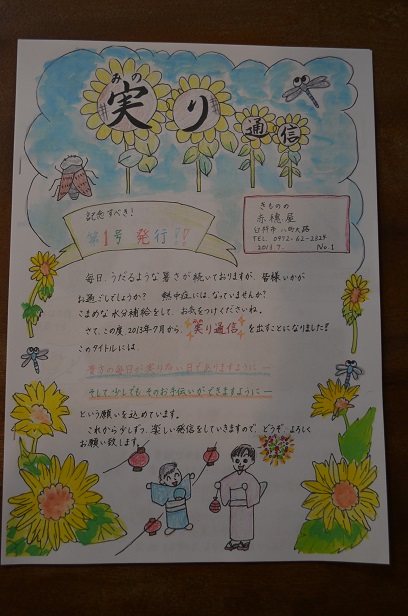 みの
実り通信
記念すべき!
第1号 発行!!
きものの
赤穂屋
臼杵市 八町大路
TEL 0972-62-2324
2013.7. No.1
毎日、うだるような暑さが続いておりますが、皆様いかが
お過ごしでしょうか? 熱中症にはなっていませんか?
こまめな水分補給をして、お気をつけくださいね。
さて、この度 2013年7月から、実り通信を出すことになりました!!
このタイトルには、
皆さの毎日が実りない日でありますように―
そして少しでも そのお手伝いができますように―
という願いを込めています。
これから少しずつ、楽しい発信をしていきますので、どうぞ よろしく
お願い致します。